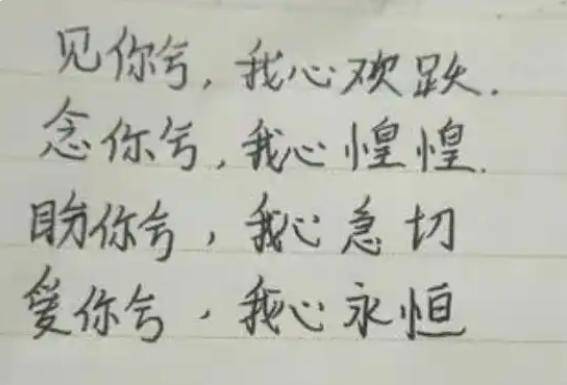 见你兮，我心欢跃.
念你兮，我心惶惶.
盼你兮，我心急切
爱你兮，我心永恒